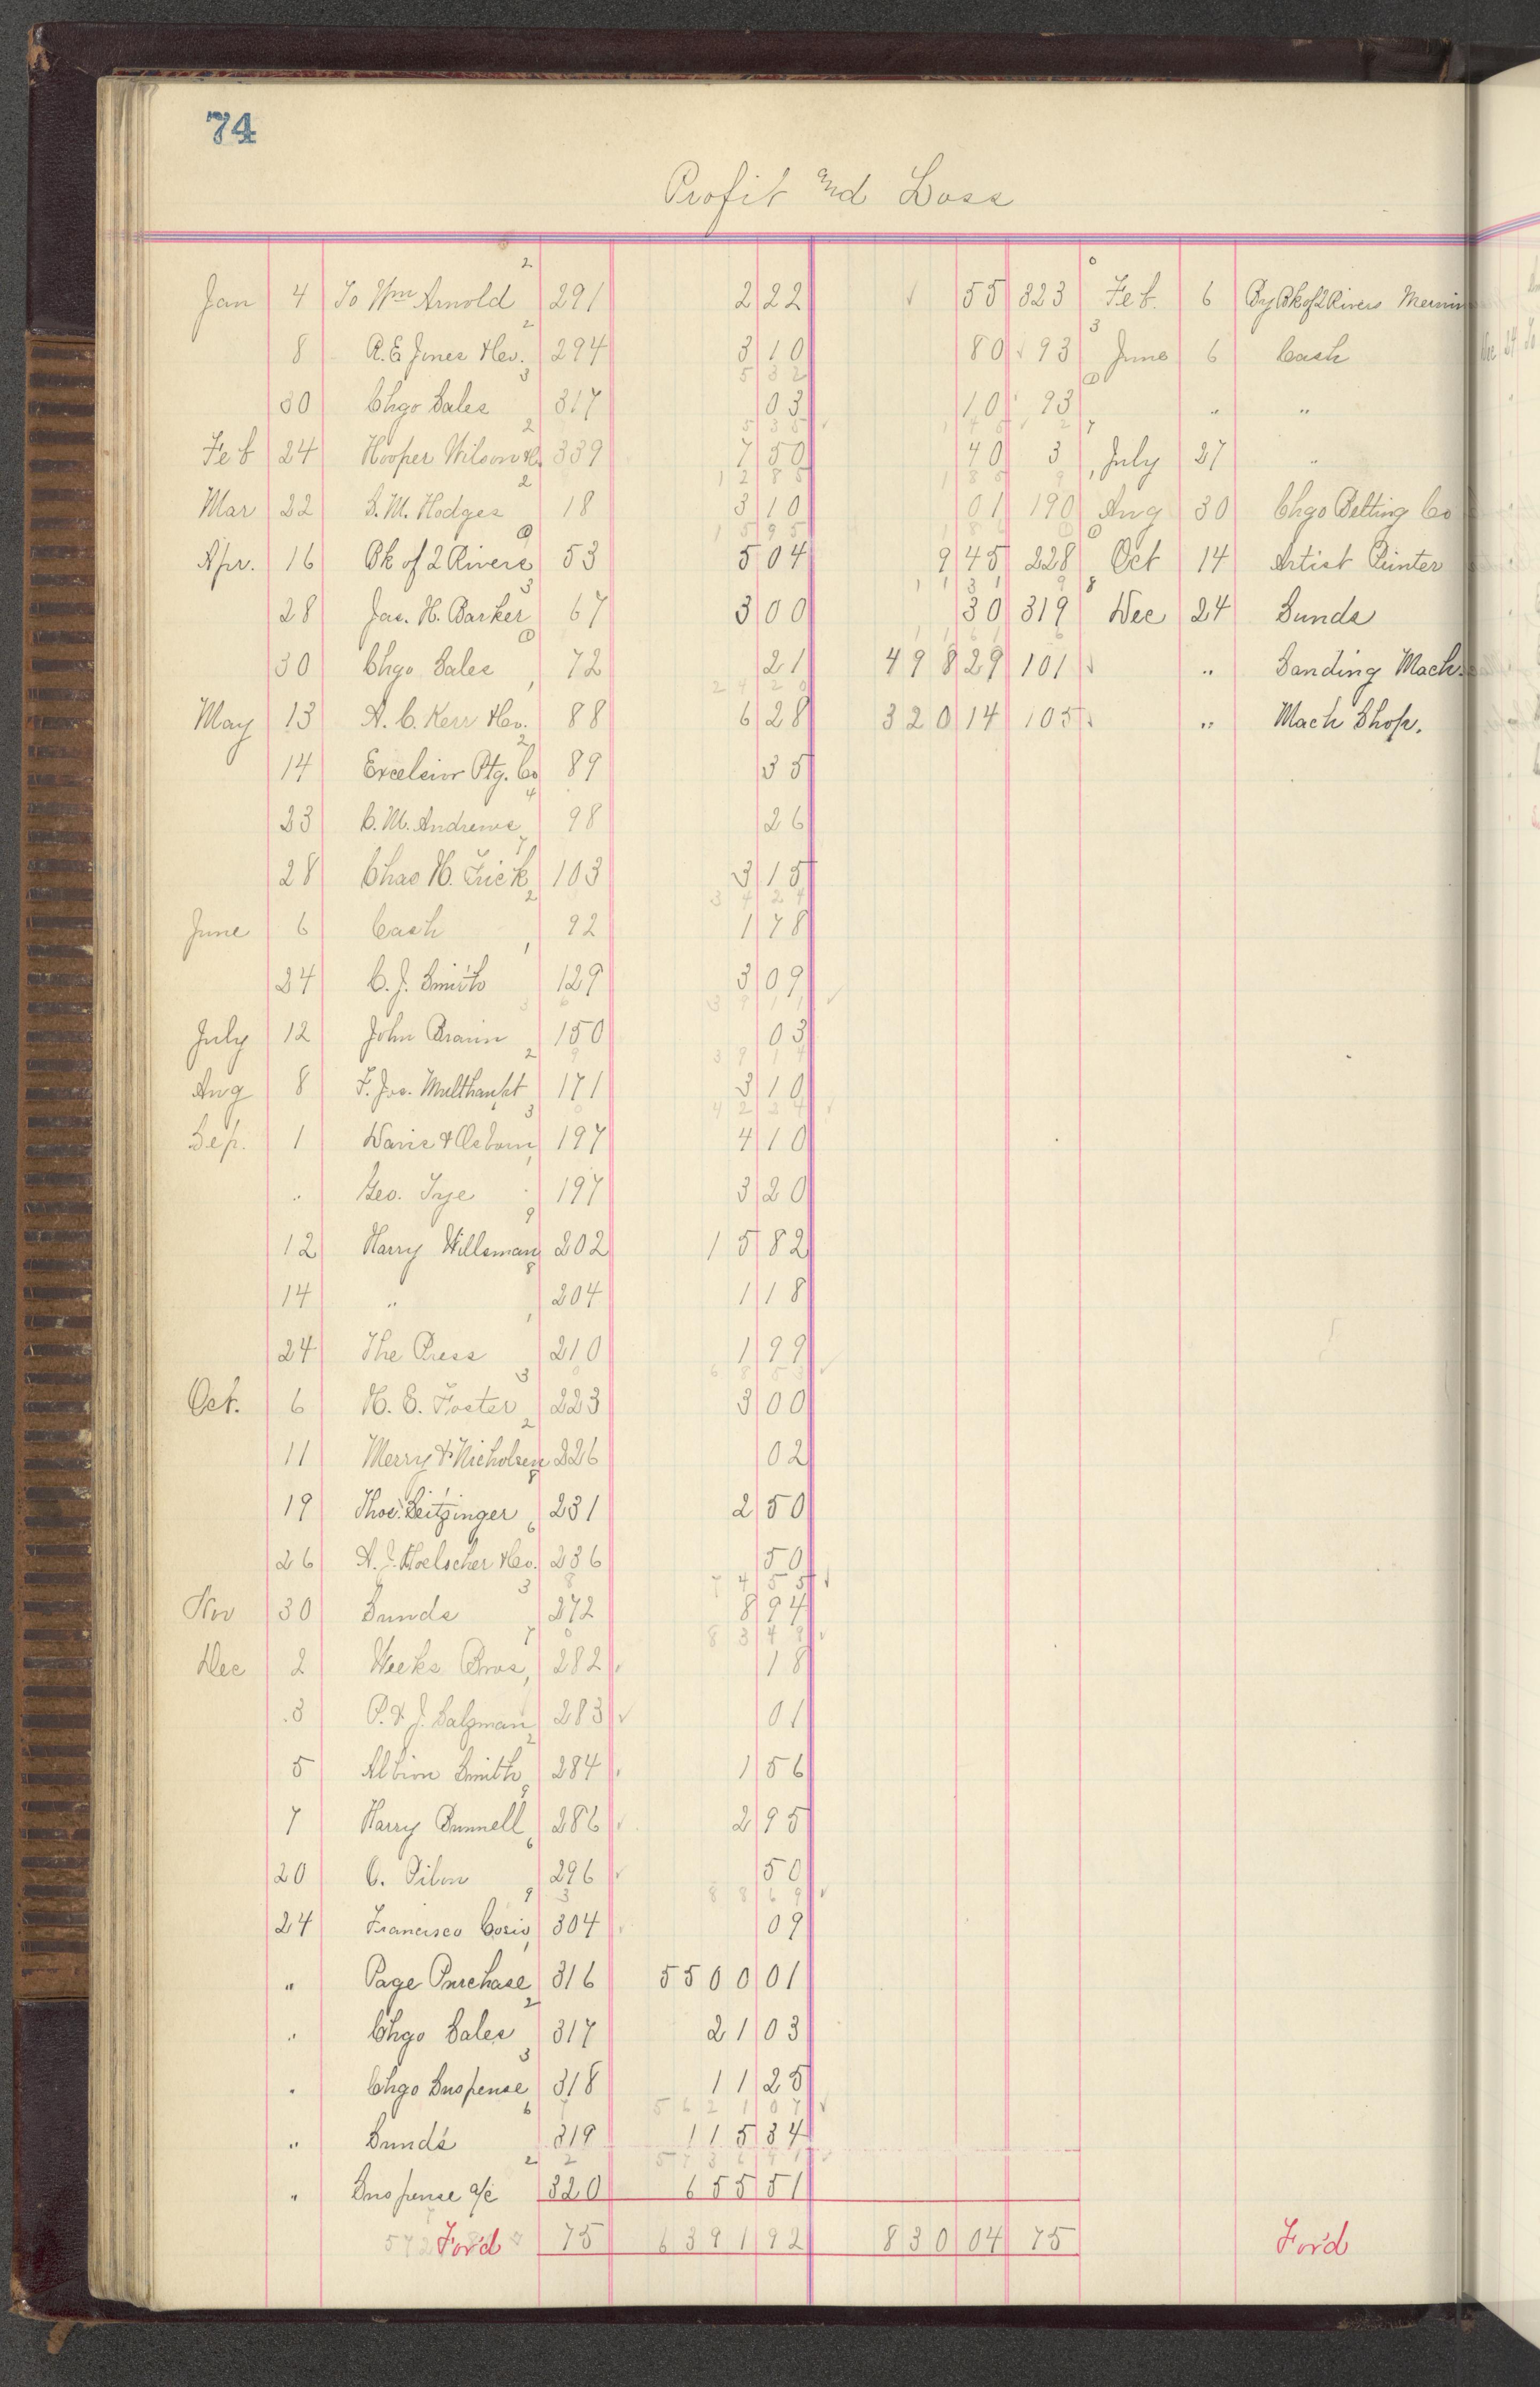 74
Profit and Loss
Jan 4 To Wm Arnold 291 2 22 55 323 Feb. 6 By Bk of 2 Rivers
8 R. E. Jones & Co. 294 3 10 80 93 June 6 Cash
5 32
30 Chgo Sales 317 03 10 93 " "
5 35
Feb 24 Hooper Wilson & Co 339 7 50 40 3 July 27 "
12 85
Mar 22 S. M. Hodges 18 3 10 01 190 Aug 30 Chgo Belting Co
15 95
Apr. 16 Bk of 2 Rivers 53 5 04 9 45 228 Oct 14 Artist Printer
28 Jas. H. Barker 67 3 00 30 319 Dec 24 Sunds
30 Chgo Sales 72 21 498 29 101 " Sanding Mach.
24 20
May 13 A. C. Kerr & Co. 88 6 28 320 14 105 " Mach Shop.
14 Excelsior Ptg. Co 89 35
23 C. M. Andrews 98 26
28 Chas H. Frick 103 3 15
34 24
June 6 Cash 92 1 78
24 C. J. Smith 129 3 09
39 11
July 12 John Braun 150 03
39 14
Aug 8 F. Jos. Multhaupt 171 3 10
42 24
Sep. 1 Davis & Osborn 197 4 10
" Geo. Frye 197 3 20
12 Harry Willsman 202 15 82
14 " 204 1 18
24 The Press 210 1 99
68 53
Oct. 6 H. E. Foster 223 3 00
11 Merry & Nicholsen 226 02
19 Thos. Seitzinger 231 2 50
26 A. J. Hoelscher & Co. 236 50
74 55
Nov 30 Sunds 272 8 94
83 49
Dec 2 Weeks Bros, 282 18
3 P. & J. Salzman 283 01
5 Albion Smith 284 1 56
7 Harry Bunnell 286 2 95
20 O. Pilon 296 50
88 69
24 Francisco Cosio 304 09
" Page Purchase 316 5500 01
" Chgo Sales 317 21 03
" Chgo Suspense 318 11 25
5621 07
" Sunds 319 115 34
5736 41
" Suspense a/c 320 655 51
For'd 75 6391 92 830 04 75 For'd